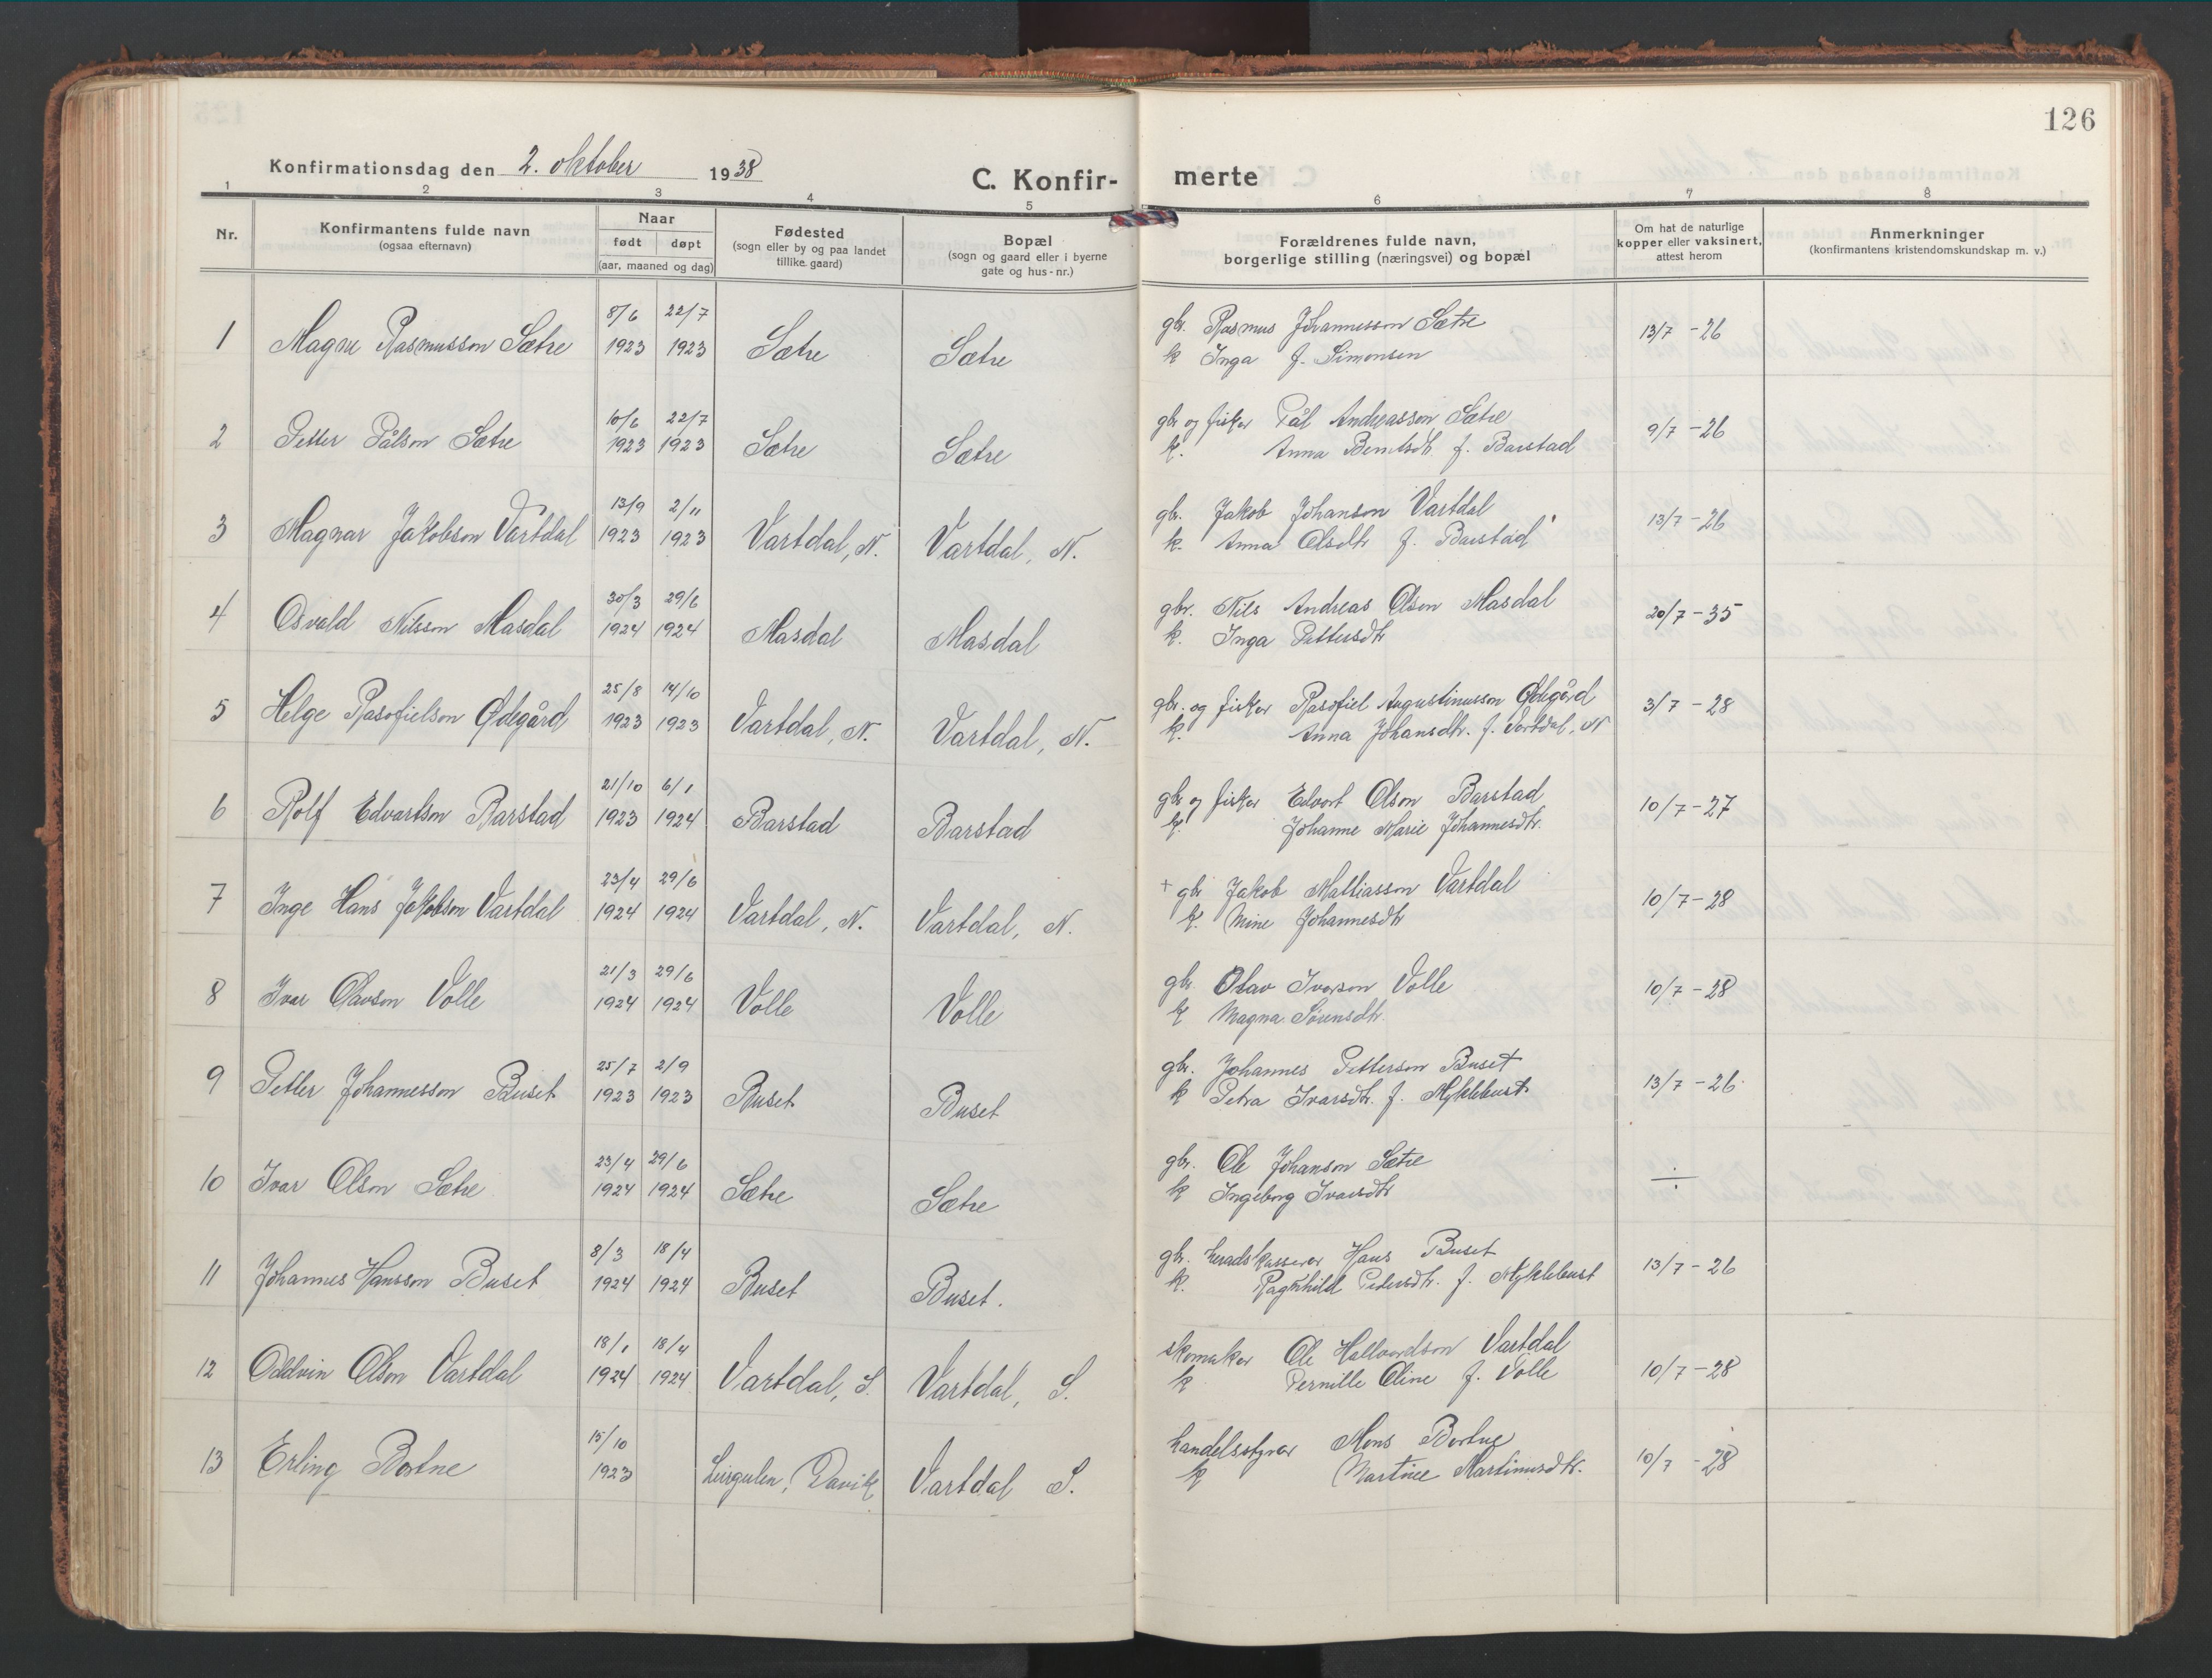 126
Konfirmationsdag den 2. oktober 1938
C. Konfir- merte
1 2 3 4 5 6 7 8
Nr.
Konfirmantens fulde navn
(ogsaa efternavn)
Naar
født døpt
(aar, maaned og dag)
Fødested
(sogn eller by og paa landet
tillike gaard)
Bopæl
(sogn og gaard eller i byerne
gate og hus-nr.)
Forældrenes fulde navn,
borgerlige stilling (næringsvei) og bopæl
Om hat de naturlige
kopper eller vaksinert,
attest herom
Anmerkninger
(konfirmantens kristendomskundskap m. v.)
8/6 22/7
1 Magne Rasmusson Sætre 1923 1923 Sætre Sætre
gbr. Rasmus Johannesson Sætre
k Inga f. Simonsen
13/7 - 26
10/6 22/7
2 Petter Pålson Sætre 1923 1923 Sætre Sætre
gbr og fisker Pål Andreasson Sætre
k. Anna Berntsdtr f. Barstad
9/7 - 26
13/9 2/11
3 Magnar Jakobson Vartdal 1923 1923 Vartdal, N. Vartdal, N.
gbr. Jakob Johanson Vartdal
k. Anna Olsdtr f. Barstad
13/7 - 26
30/3 29/6
4 Osvald Nilsson Masdal 1924 1924 Masdal Masdal
gbr. Nils Andreas Olson Masdal
k. Inga Pettersdtr
20/7 - 35
25/8 14/10
5 Helge Rasofielson Ødegård 1923 1923 Vartdal, N. Vartdal, N.
gbr. og fisker Rasofiel Augustinusson Ødegård
k. Anna Johansdtr. f. Vartdal, N
3/7 - 28
21/10 6/1
6 Rolf Edvartson Barstad 1923 1924 Barstad Barstad
gbr og fisker Edvart Olson Barstad
k. Johanne Marie Johannesdtr.
10/7 - 27
23/4 29/6
7 Inge Hans Jakobson Vartdal 1924 1924 Vartdal, N. Vartdal, N.
+ gbr Jakob Mattiasson Vartdal
k. Mine Johannesdtr
10/7 - 28
21/3 29/6
8 Ivar Olavson Volle 1924 1924 Volle Volle
gbr. Olav Ivarson Volle
k Magna Sørensdtr.
10/7 - 28
25/7 2/9
9 Petter Johannesson Buset 1923 1923 Buset Buset
gbr. Johannes Petterson Buset
k Petra Ivarsdtr. f. Myklebust
13/7 - 26
23/4 29/6
10 Ivar Olson Sætre 1924 1924 Sætre Sætre
gbr. Ole Johanson Sætre
k Ingeborg Ivarsdtr
÷
8/3 18/4
11 Johannes Hansson Buset 1924 1924 Buset Buset.
gbr. heradskasserer Hans Buset
k. Ragnhild Pedersdtr. f. Myklebust
13/7 - 26
18/1 18/4
12 Oddvin Olson Vartdal 1924 1924 Vartdal, S. Vartdal, S.
skomaker Ole Hallvardson Vartdal
k Pernille Oline f. Volle
10/7 - 28
15/10
13 Erling Bortne 1923 Leirgulen, Davik Vartdal S.
handelsstyrer Mons Bortne
k Martine Martinusdtr.
10/7 - 28